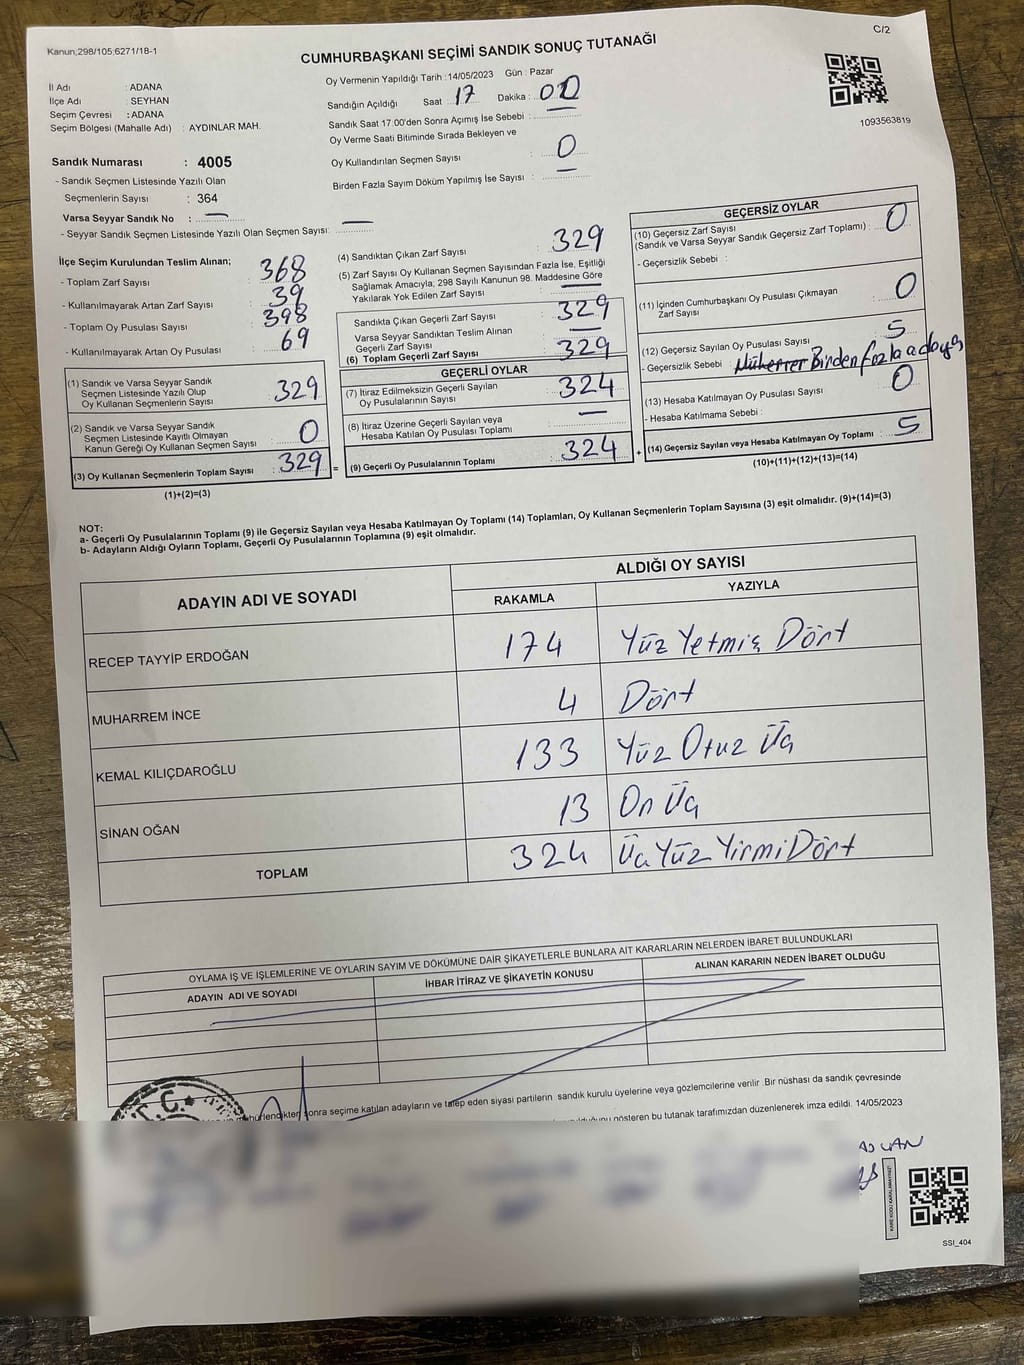 Kanun,298/105,6271/18-1
C/2
CUMHURBAŞKANI SEÇİMİ SANDIK SONUÇ TUTANAĞI
İl Adı : ADANA
İlçe Adı : SEYHAN
Seçim Çevresi : ADANA
Seçim Bölgesi (Mahalle Adı) : AYDINLAR MAH.
Sandık Numarası : 4005
- Sandık Seçmen Listesinde Yazılı Olan
Seçmenlerin Sayısı : 364
Varsa Seyyar Sandık No : —
- Seyyar Sandık Seçmen Listesinde Yazılı Olan Seçmen Sayısı: —
Oy Vermenin Yapıldığı Tarih : 14/05/2023 Gün : Pazar
Sandığın Açıldığı Saat 17 Dakika : 00
Sandık Saat 17:00'den Sonra Açımış İse Sebebi : —
Oy Verme Saati Bitiminde Sırada Bekleyen ve
Oy Kullandırılan Seçmen Sayısı : 0
Birden Fazla Sayım Döküm Yapılmış İse Sayısı : —
1093563819
İlçe Seçim Kurulundan Teslim Alınan;
- Toplam Zarf Sayısı : 368
- Kullanılmayarak Artan Zarf Sayısı : 39
- Toplam Oy Pusulası Sayısı : 398
- Kullanılmayarak Artan Oy Pusulası : 69
(1) Sandık ve Varsa Seyyar Sandık
Seçmen Listesinde Yazılı Olup
Oy Kullanan Seçmenlerin Sayısı : 329
(2) Sandık ve Varsa Seyyar Sandık
Seçmen Listesinde Kayıtlı Olmayan
Kanun Gereği Oy Kullanan Seçmen Sayısı : 0
(3) Oy Kullanan Seçmenlerin Toplam Sayısı : 329 =
(1)+(2)=(3)
(4) Sandıktan Çıkan Zarf Sayısı : 329
(5) Zarf Sayısı Oy Kullanan Seçmen Sayısından Fazla İse, Eşitliği
Sağlamak Amacıyla, 298 Sayılı Kanunun 98. Maddesine Göre
Yakılarak Yok Edilen Zarf Sayısı : —
Sandıkta Çıkan Geçerli Zarf Sayısı : 329
Varsa Seyyar Sandıktan Teslim Alınan
Geçerli Zarf Sayısı : —
(6) Toplam Geçerli Zarf Sayısı : 329
GEÇERLİ OYLAR
(7) İtiraz Edilmeksizin Geçerli Sayılan
Oy Pusulalarının Sayısı : 324
(8) İtiraz Üzerine Geçerli Sayılan veya
Hesaba Katılan Oy Pusulası Toplamı : —
(9) Geçerli Oy Pusulalarının Toplamı : 324 +
GEÇERSİZ OYLAR
(10) Geçersiz Zarf Sayısı
(Sandık ve Varsa Seyyar Sandık Geçersiz Zarf Toplamı) : 0
- Geçersizlik Sebebi :
(11) İçinden Cumhurbaşkanı Oy Pusulası Çıkmayan
Zarf Sayısı : 0
(12) Geçersiz Sayılan Oy Pusulası Sayısı : 5
- Geçersizlik Sebebi Müherrer Birden fazla adaya
(13) Hesaba Katılmayan Oy Pusulası Sayısı : 0
- Hesaba Katılmama Sebebi :
(14) Geçersiz Sayılan veya Hesaba Katılmayan Oy Toplamı : 5
(10)+(11)+(12)+(13)=(14)
NOT:
a- Geçerli Oy Pusulalarının Toplamı (9) ile Geçersiz Sayılan veya Hesaba Katılmayan Oy Toplamı (14) Toplamları, Oy Kullanan Seçmenlerin Toplam Sayısına (3) eşit olmalıdır. (9)+(14)=(3)
b- Adayların Aldığı Oyların Toplamı, Geçerli Oy Pusulalarının Toplamına (9) eşit olmalıdır.
ADAYIN ADI VE SOYADI
ALDIĞI OY SAYISI
RAKAMLA YAZIYLA
RECEP TAYYİP ERDOĞAN 174 Yüz Yetmiş Dört
MUHARREM İNCE 4 Dört
KEMAL KILIÇDAROĞLU 133 Yüz Otuz Üç
SİNAN OĞAN 13 On Üç
TOPLAM 324 Üç Yüz Yirmi Dört
OYLAMA İŞ VE İŞLEMLERİNE VE OYLARIN SAYIM VE DÖKÜMÜNE DAİR ŞİKAYETLERLE BUNLARA AİT KARARLARIN NELERDEN İBARET BULUNDUKLARI
ADAYIN ADI VE SOYADI İHBAR İTİRAZ VE ŞİKAYETİN KONUSU ALINAN KARARIN NEDEN İBARET OLDUĞU
sonra seçime katılan adayların ve talep eden siyasi partilerin sandık kurulu üyelerine veya gözlemcilerine verilir. Bir nüshası da sandık çevresinde
gösteren bu tutanak tarafımızdan düzenlenerek imza edildi. 14/05/2023
T.C.
SSI_404